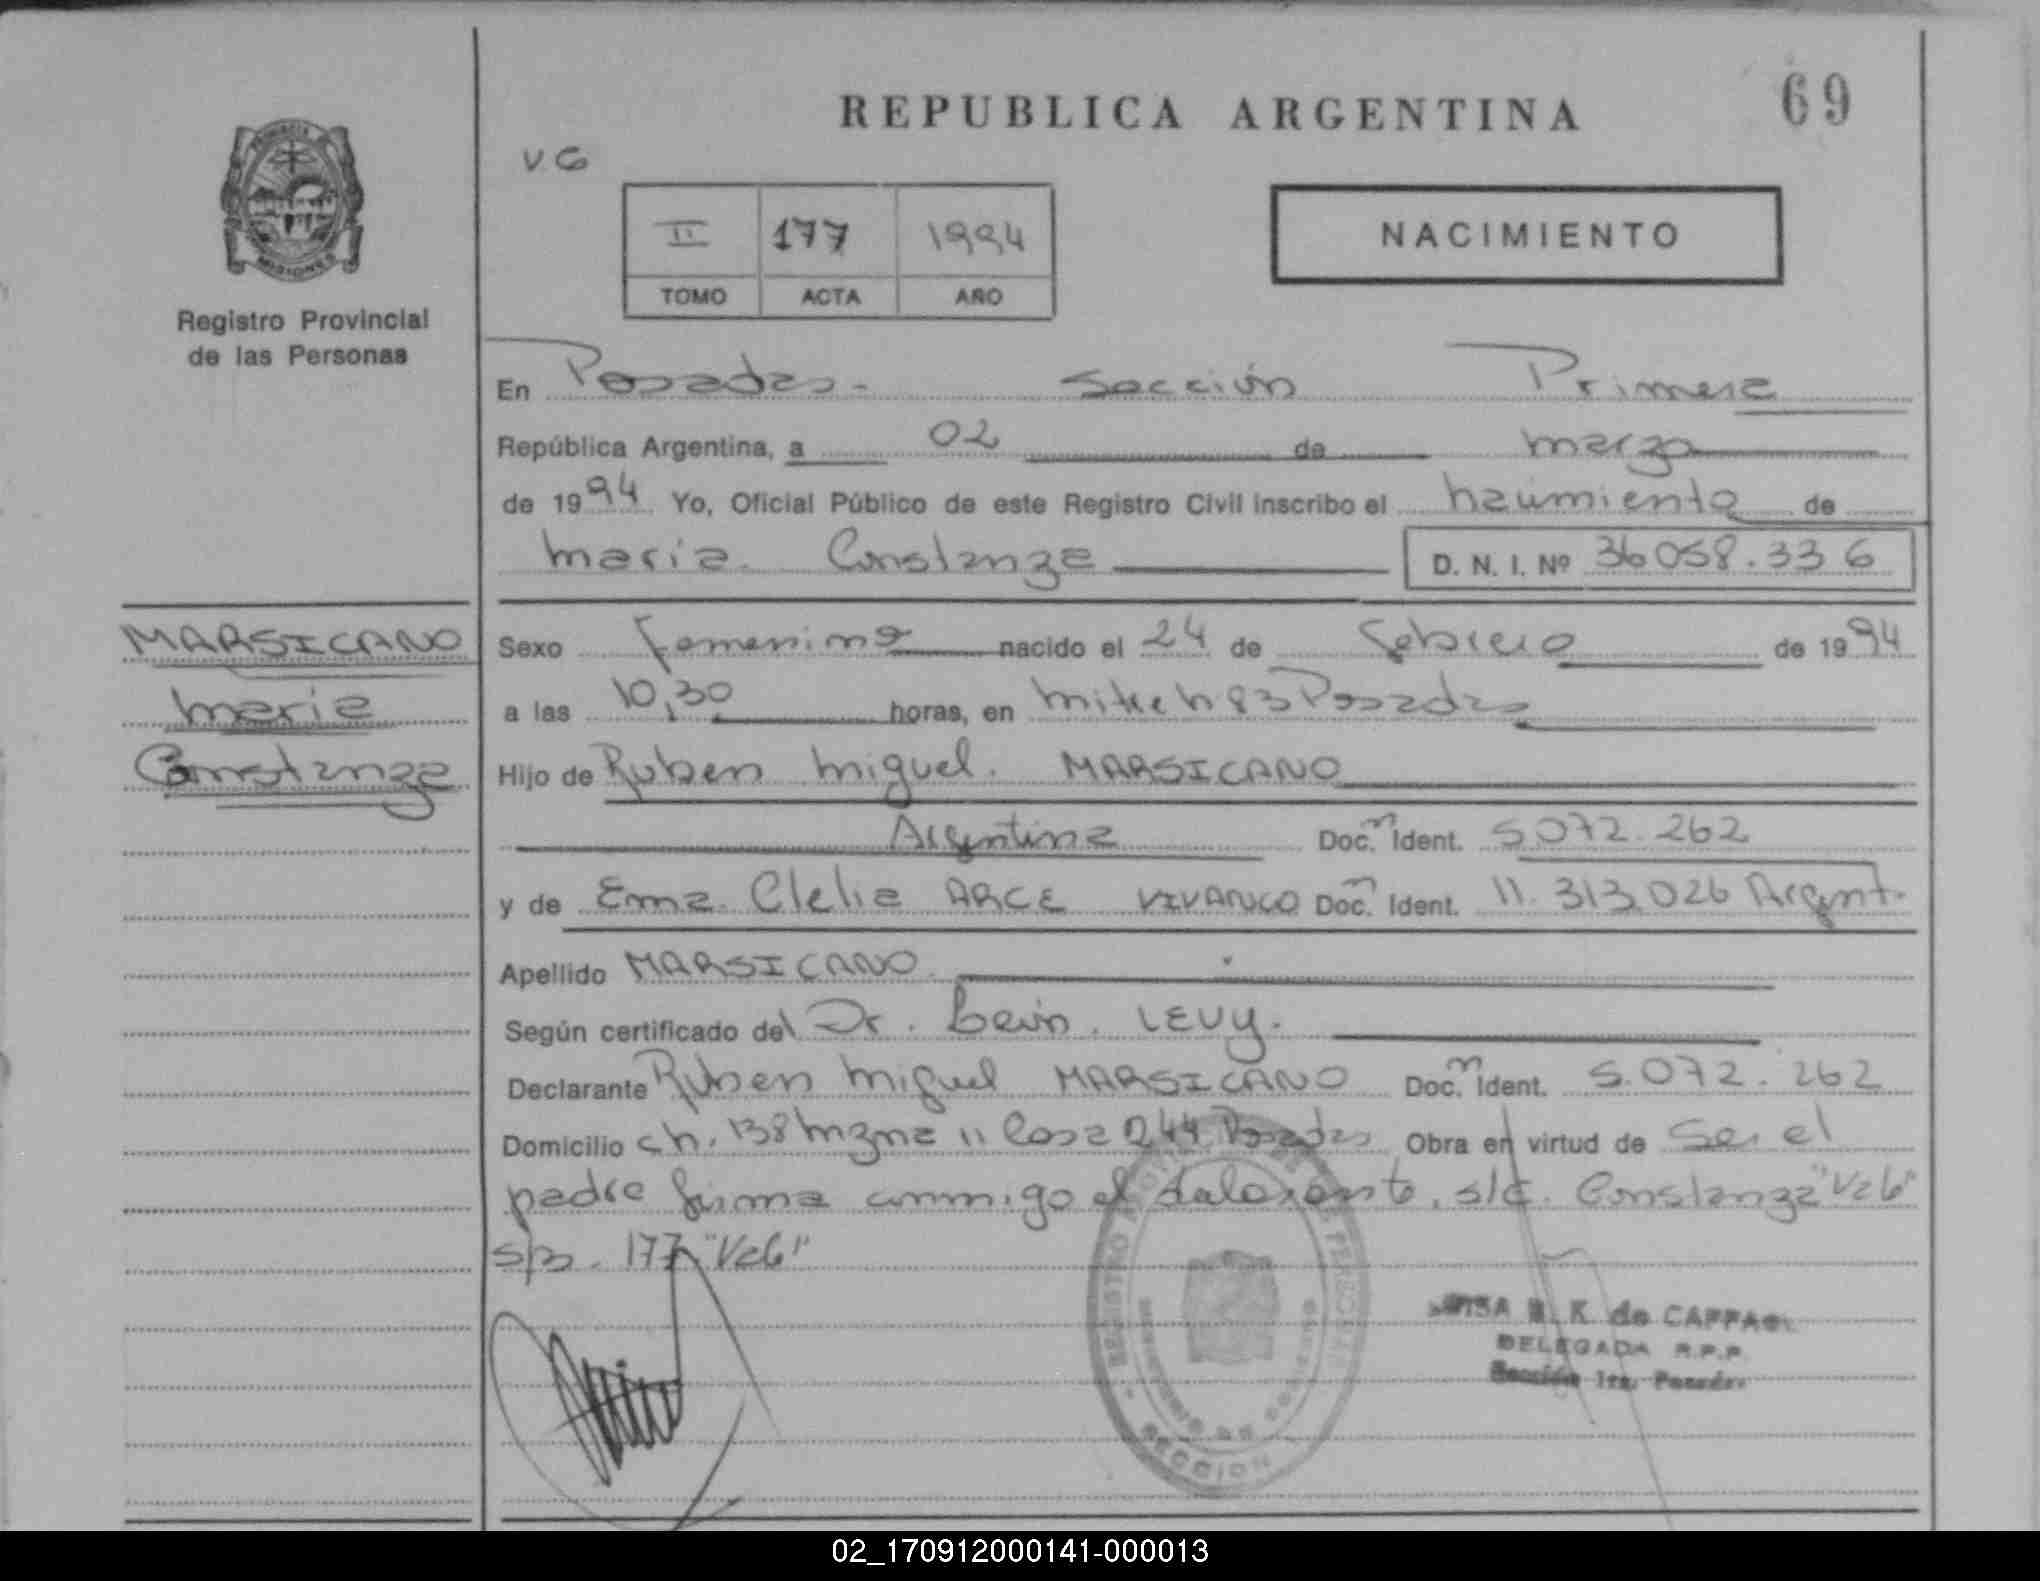 REPUBLICA ARGENTINA
69
V.G
II 177 1994
TOMO ACTA AÑO
NACIMIENTO
PROVINCIA
MISIONES
Registro Provincial
de las Personas
En Posadas - Sección Primera
República Argentina, a 02 de marzo
de 1994 Yo, Oficial Público de este Registro Civil inscribo el nacimiento de
María Constanza D. N. I. Nº 36058.336
MARSICANO
María
Constanza
Sexo femenino nacido el 24 de febrero de 1994
a las 10,30 horas, en Mitre n 83 Posadas
Hijo de Ruben Miguel. MARSICANO
Argentina Doc. m Ident. 5.072.262
y de Ema Clelia ARCE VIVANCO Doc. m Ident. 11.313.026 Argent.
Apellido MARSICANO
Según certificado del Dr. LEVY.
Declarante Ruben Miguel MARSICANO Doc. m Ident. 5.072.262
Domicilio ch. 138 mzna 11 Casa 244 Posadas Obra en virtud de Ser el
padre firma conmigo el s/c. Constanza "Vale"
s/b. 177 "Vale"
REGISTRO PROVINCIAL DE LAS PERSONAS
MINISTERIO DE GOBIERNO
SECCION
K. de CAFFA
DELEGADA R.P.P.
Sección 1ra. Posadas
02_170912000141-000013